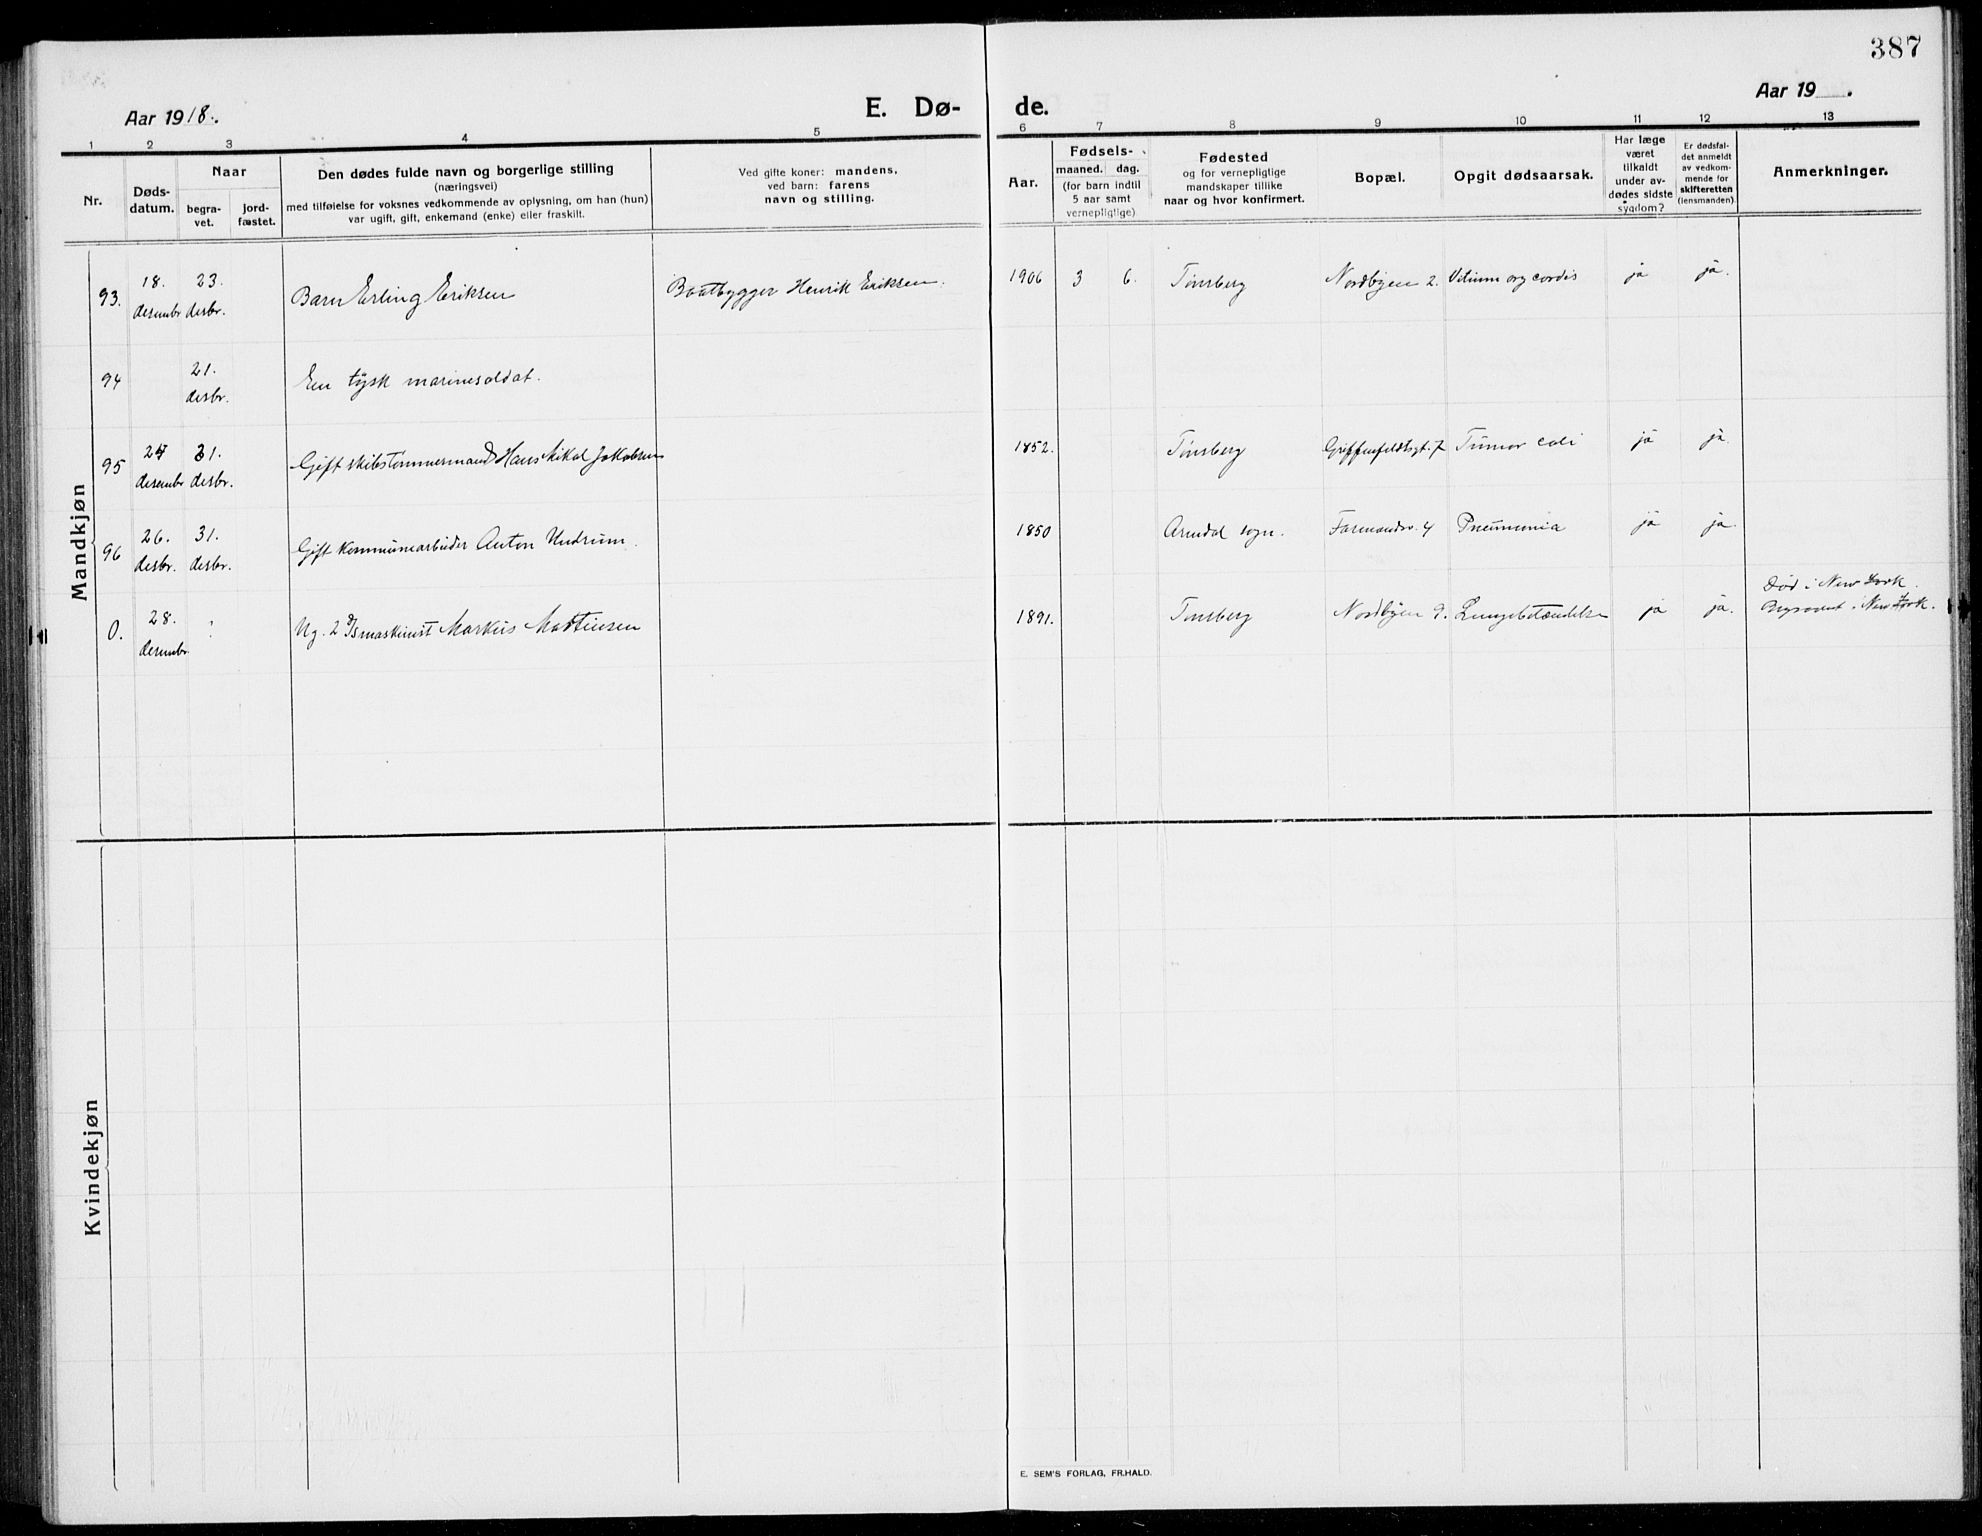 387
Aar 1918.
E. Dø-
de.
Aar 19 .
1 2 3 4 5 6 7 8 9 10 11 12 13
Nr.
Døds-
datum.
Naar
begra-
vet.
jord-
fæstet.
Den dødes fulde navn og borgerlige stilling
(næringsvei)
med tilføielse for voksnes vedkommende av oplysning, om han (hun)
var ugift, gift, enkemand (enke) eller fraskilt.
Ved gifte koner: mandens,
ved barn: farens
navn og stilling.
Aar.
Fødsels-
maaned. dag.
(for barn indtil
5 aar samt
vernepligtige)
Fødested
og for vernepligtige
mandskaper tillike
naar og hvor konfirmert.
Bopæl.
Opgit dødsaarsak.
Har læge
været
tilkaldt
under av-
dødes sidste
sygdom?
Er dødsfal-
det anmeldt
av vedkom-
mende for
skifteretten
(lensmanden).
Anmerkninger.
Mandkjøn
93. 18. desembr 23. desbr. Barn Erling Eriksen Baatbygger Henrik Eriksen. 1906 3 6. Tønsberg Nordbyen 2. Vitium org cordis ja ja.
94 21. desbr. En tysk marinesoldat.
95 desembr 31. desbr. Gift skibstømmermand Hans Nikal Jakobsen 1852. Tønsberg Griffenfeldtsgt. 7 Tumor coli ja ja.
96 26. desbr. 31. desbr. Gift kommunearbeider Anton Undrum. 1850 Arendal sogn. Farmandsv. 4 Pneumonia ja ja.
0. 28. desembr. ? Ug. 2den maskinist Markus Mathisen 1891. Tønsberg Nordbyen 9. Lungebetændelse ja ja.
Død i New York.
i New York.
Kvindekjøn
E. SEM'S FORLAG, FR.HALD.